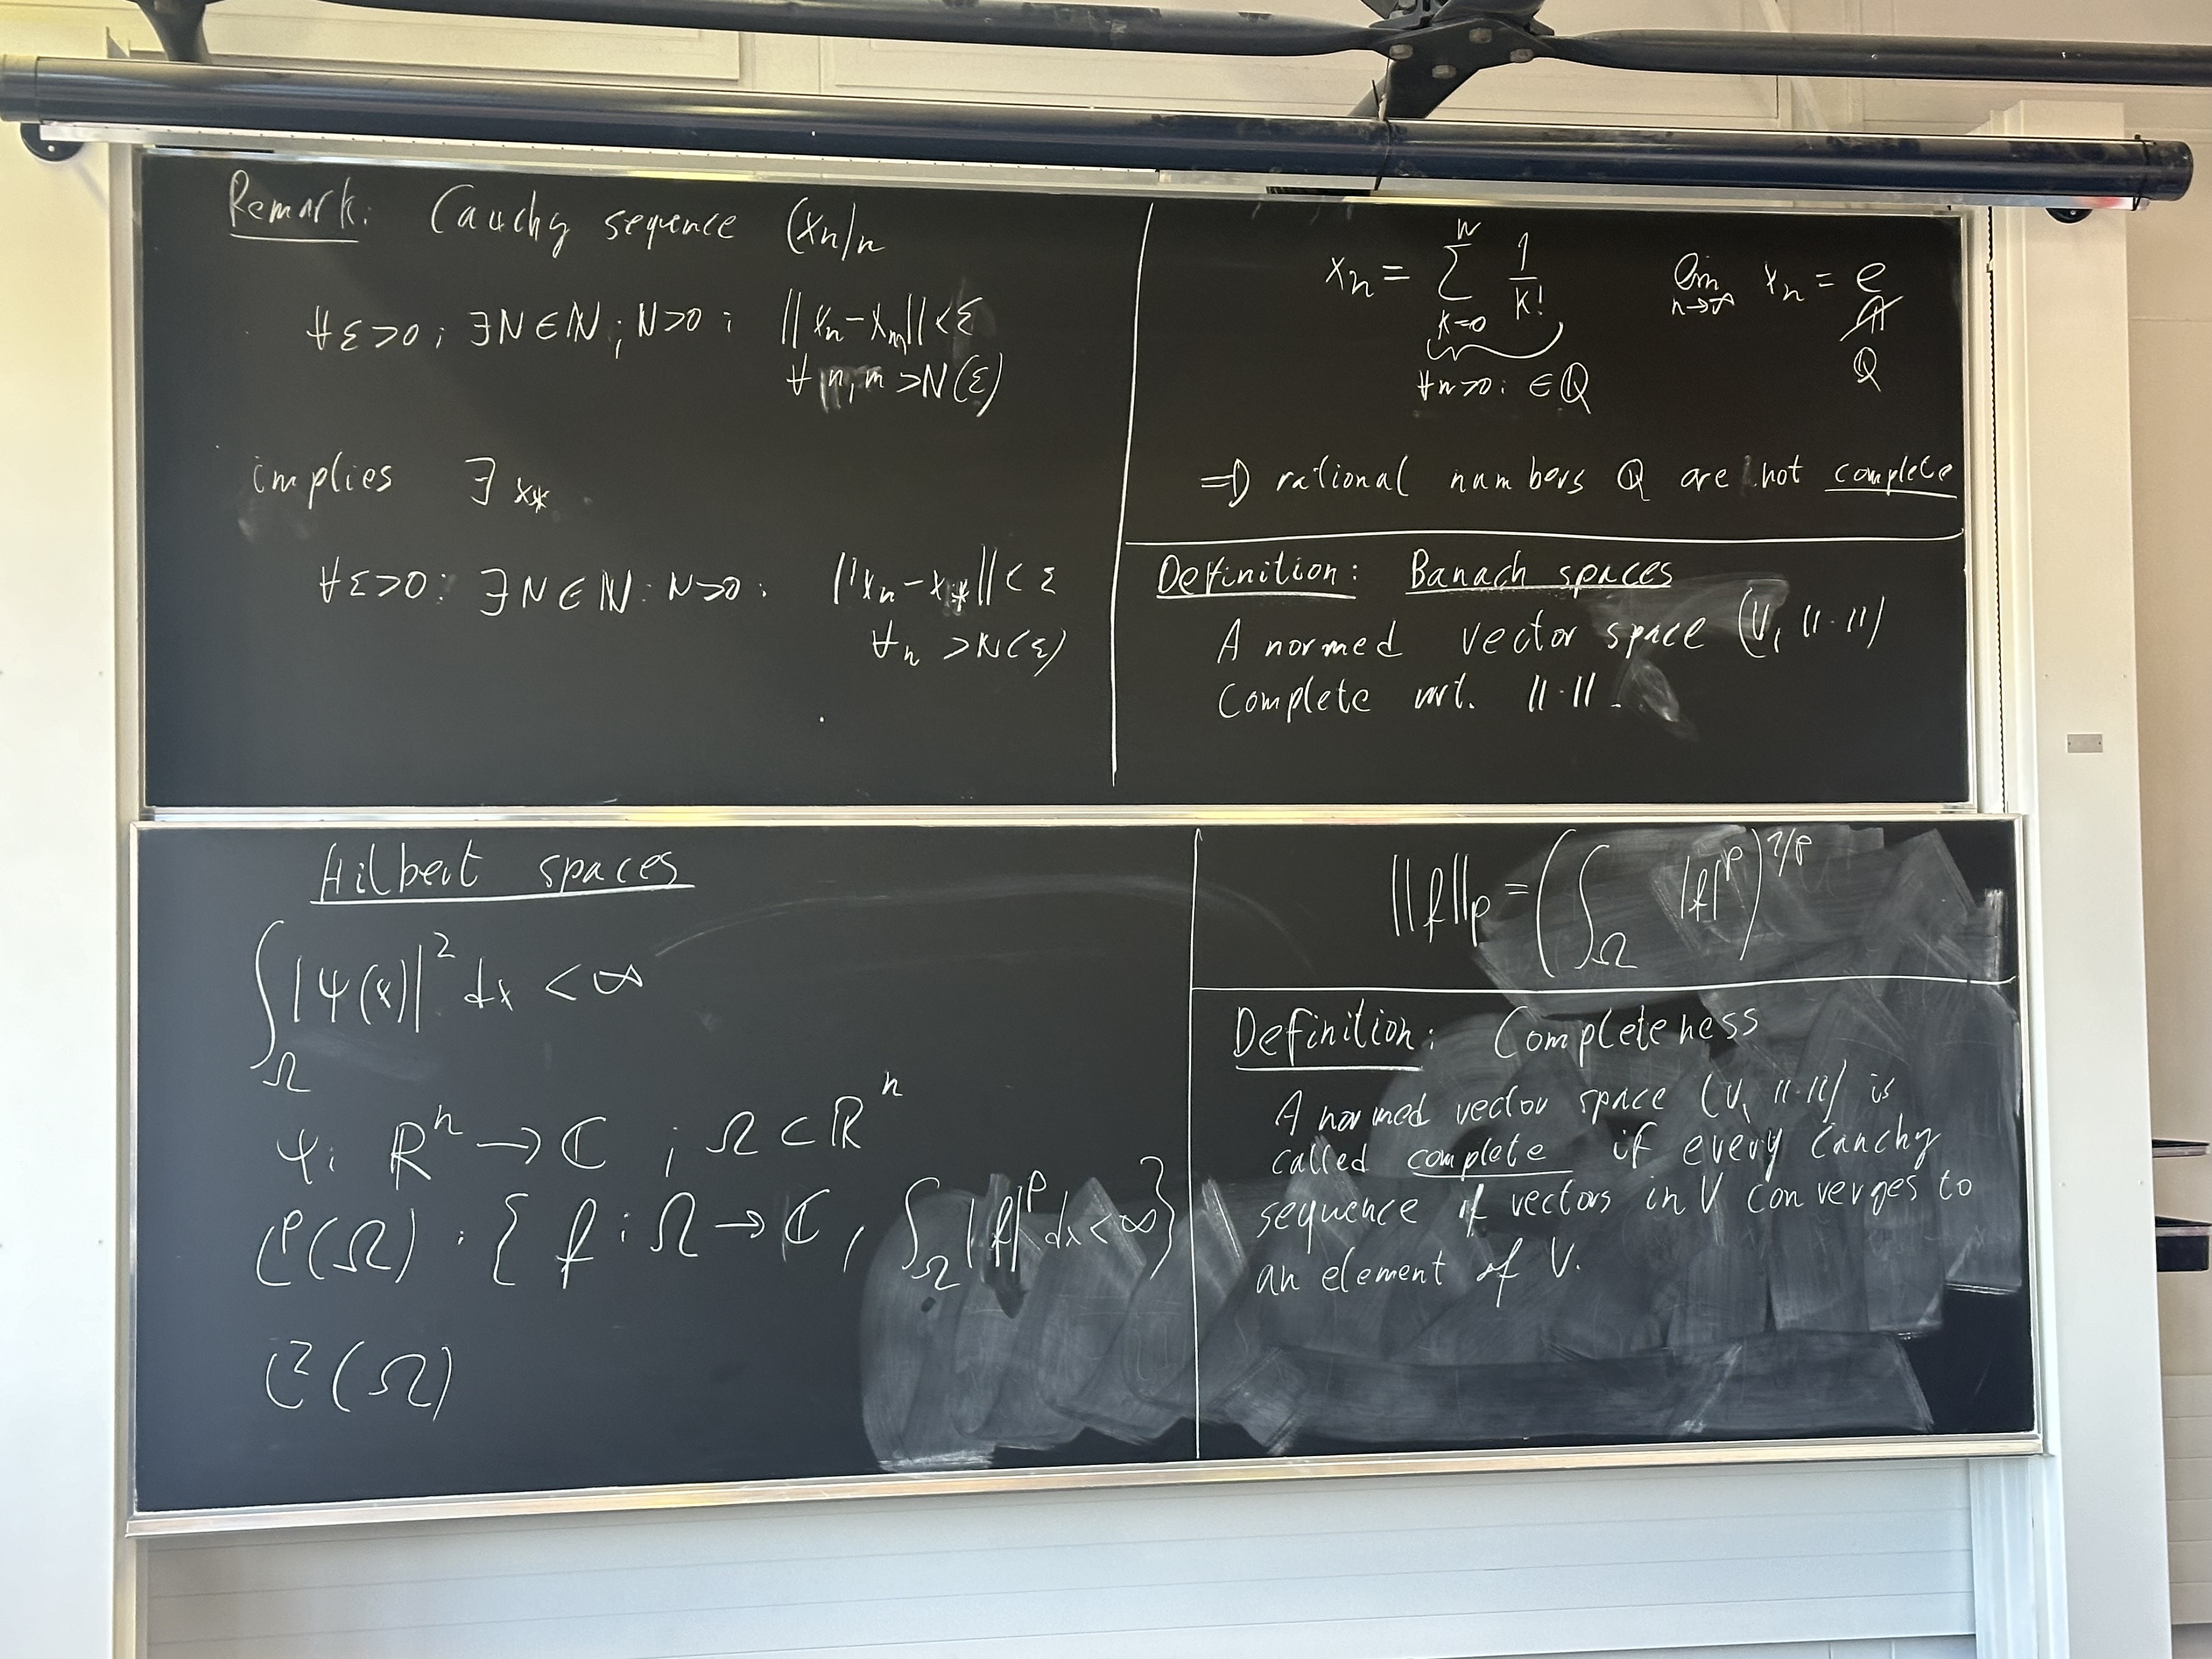 Remark: Cauchy sequence (xn)n
∀ε>0; ∃N∈ℕ; N>0: ||xn-xm||<ε
∀n,m >N(ε)
implies ∃x*
∀ε>0: ∃N∈ℕ: N>0: ||xn-x*||<ε
∀n >N(ε)
xn = ∑_{k=0}^{n} 1/k! lim_{n→∞} xn = e
∉
ℚ
∀n>0: ∈ℚ
⇒ rational numbers ℚ are not complete
Definition: Banach spaces
A normed vector space (V, ||·||)
Complete wrt. ||·||.
Hilbert spaces
∫_Ω |Ψ(x)|² dx < ∞
Ψ: ℝⁿ → ℂ ; Ω⊂ℝⁿ
ℒᵖ(Ω): { f: Ω → ℂ, ∫_Ω |f|ᵖ dx < ∞ }
ℒ²(Ω)
||f||p = (∫_Ω |f|ᵖ)^{1/p}
Definition: Completeness
A normed vector space (V, ||·||) is
called complete if every Cauchy
sequence of vectors in V converges to
an element of V.